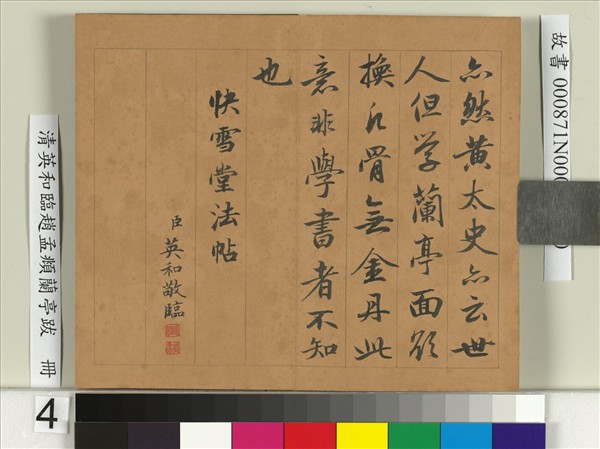 亦然黃太史亦云世
人但学蘭亭面欲
換凡骨無金丹此
意非學書者不知
也
快雪堂法帖
臣英和敬臨
故書 000871N000
清英和臨趙孟頫蘭亭跋 冊
4